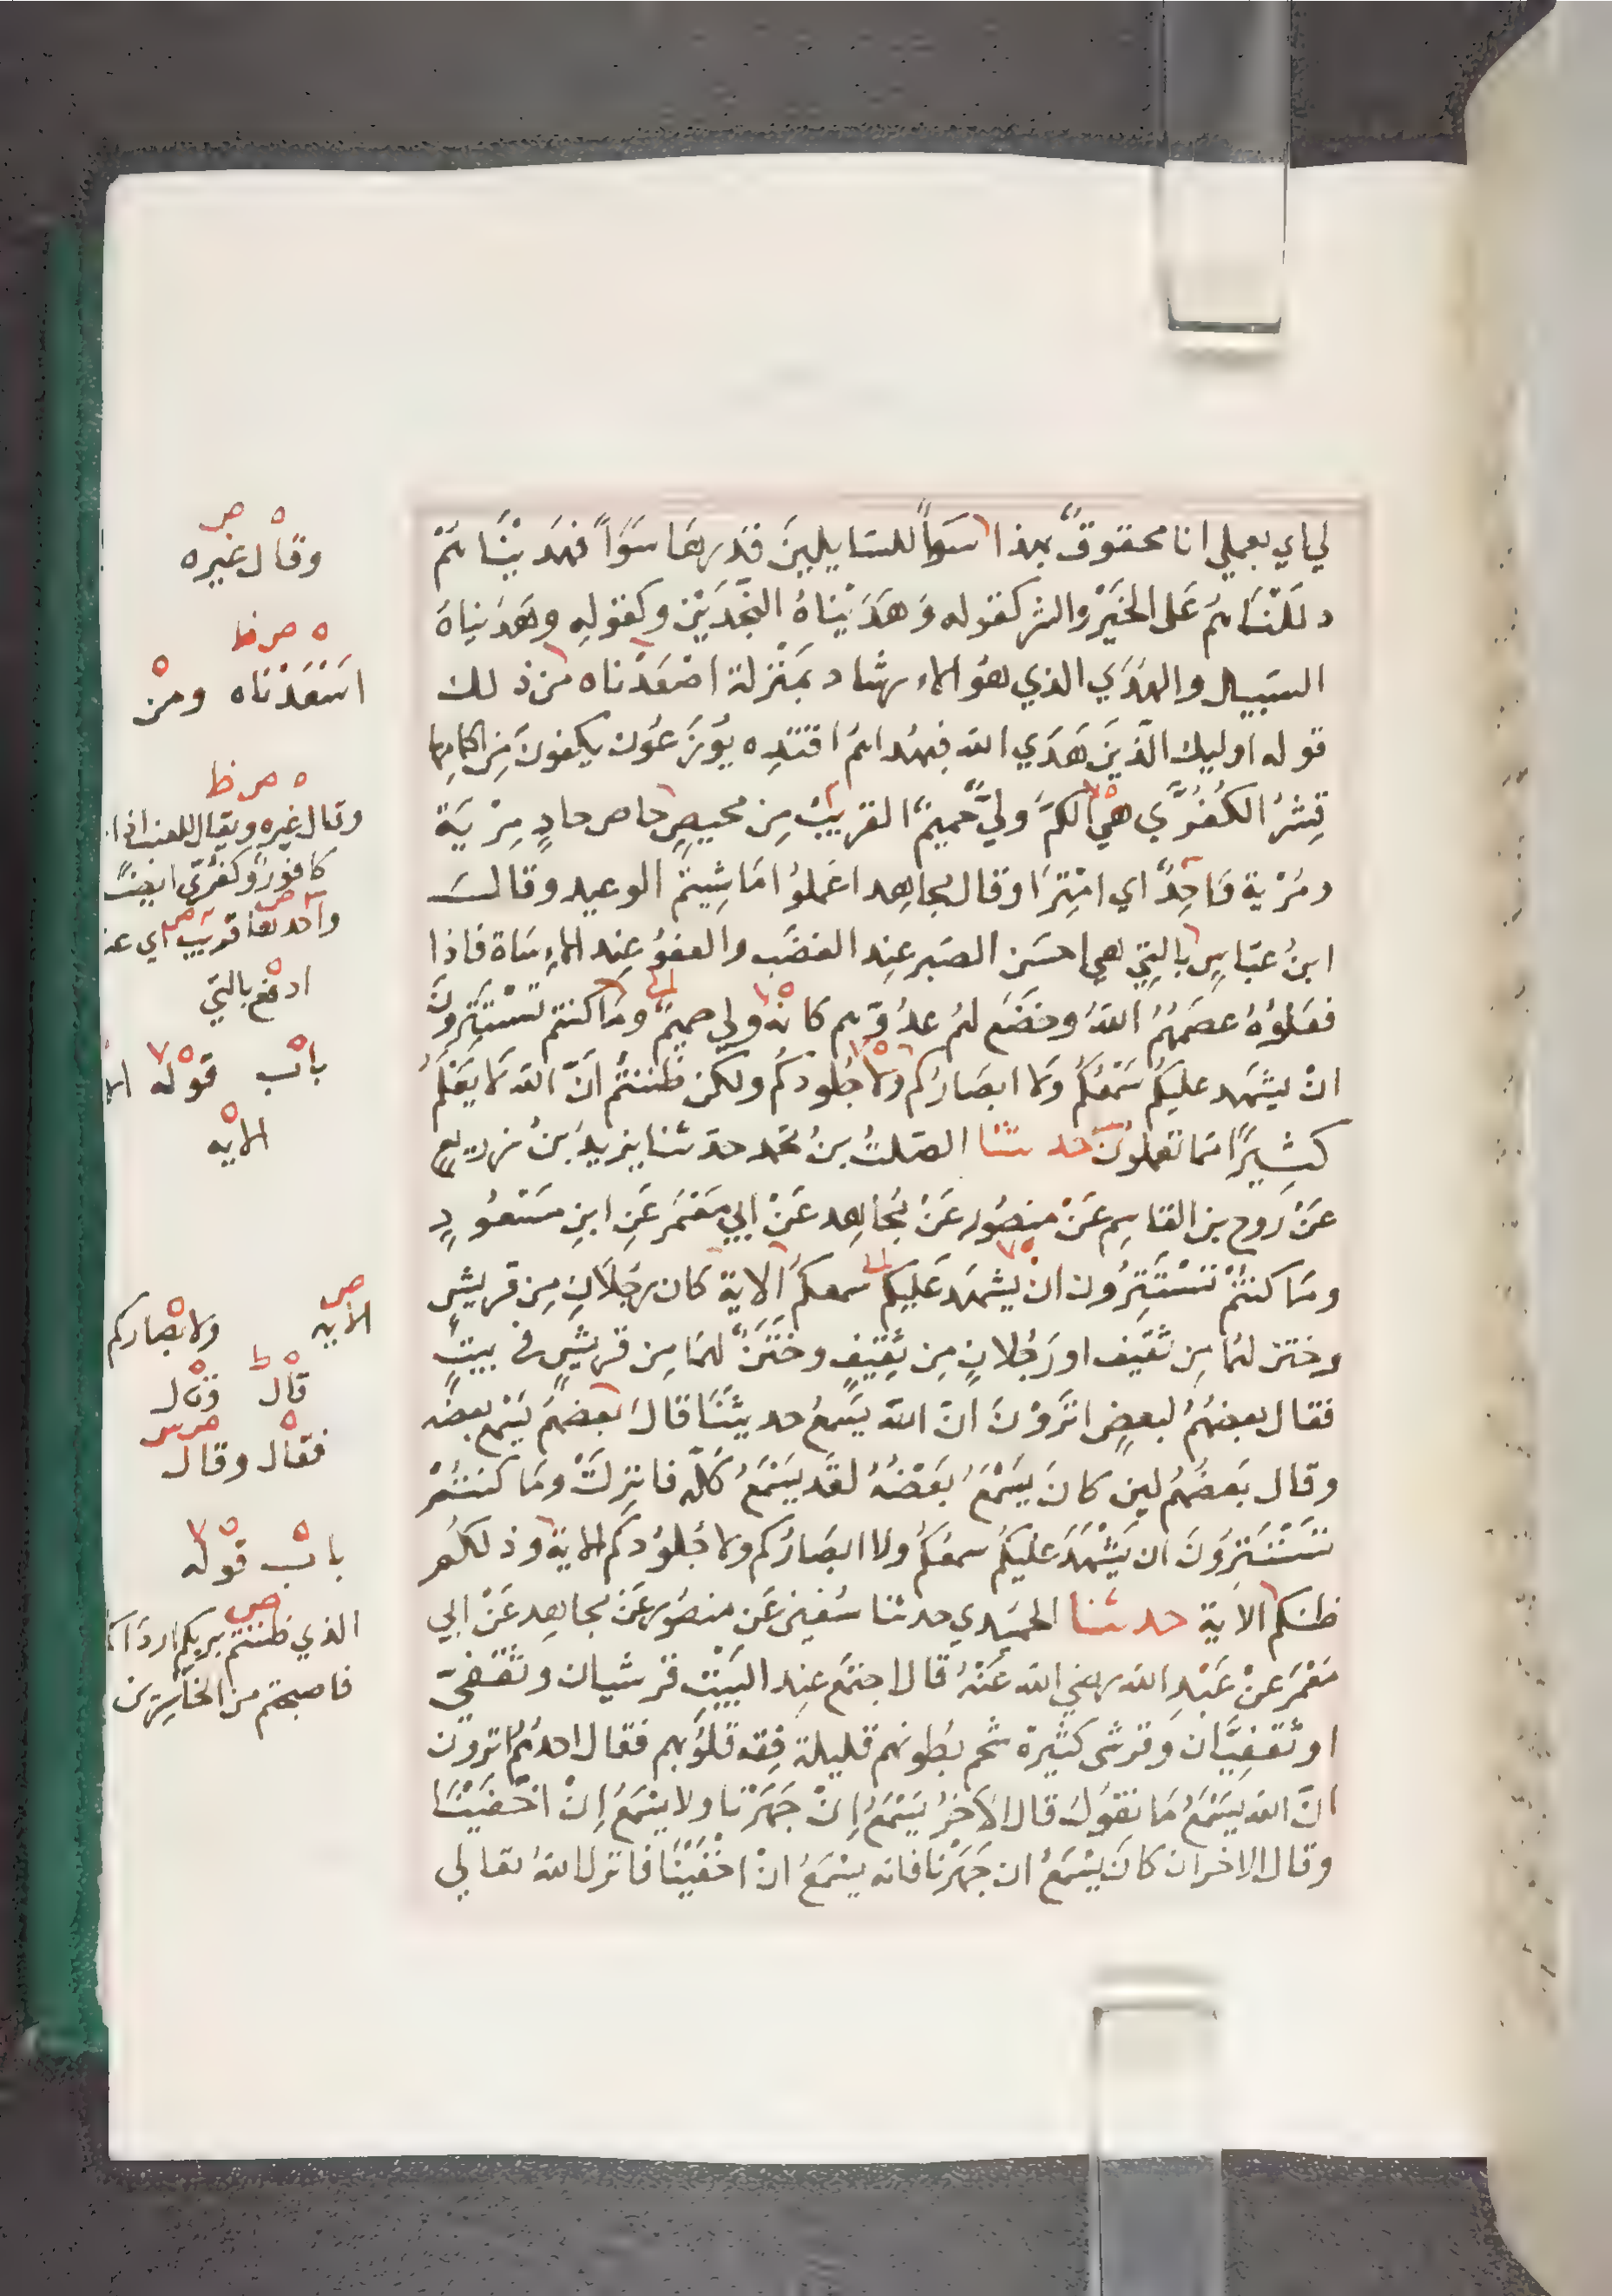 لي اي بعملي انا محقوقٌ بهذا سَوَاً للسَايلِينَ قدرهَا سَوَاً فهَدَينَاهُمْ
دلَلْنَاهُم عَلى الخَيْرِ والشر كقوله وَهَدَيْنَاهُ النَّجْدَيْنِ وكقولِهِ وهَدَيناهُ
السَبيل والهُدَي الذي هُو الارشاد بمَنْزلة اصْعَدْنَاه من ذلك
قوله اوليك الّذينَ هَدَي الله فبهُداهُمُ اقتَدِه يُوزَعُون يكفونَ مِن اكمامِها
قِشرُ الكُفُرَّي هي الكُمّ وَليٌّ حَميمٌ القريبُ مِن محيصٍ حاص حادٍ مِرْيَة
ومُرْية وَاحِدٌ اي امْتِرَا وقال مجاهِد اعمَلوُا مَا شِيتُم الوعيد وقالــ
ابنُ عبّاسٍ بالتِي هي احسَن الصَبر عِند الغضَب والعفوُ عِند الاِسَاة فاذا
فعَلوُهُ عصَمَهُمُ اللهُ وخضَع لهُم عدُوّهم كانّهُ ولي حميمٌ ومَا كنتم تَسْتَتِرُونَ
انْ يشهَد عليكُم سَمْعُكُم وَلا ابصَارُكم ولا جُلودكُم ولكن ظننتُم انّ الله لا يَعْلَمُ
كثِيرًا مما تعملون حدثنا الصّلتُ بنُ محمد حدّثنا يزيدُ بنُ زريعٍ
عَنْ رَوح بن القاسِم عَنْ منصُور عَنْ مُجاهِد عَنْ ابي مَعْمَر عَنِ ابنِ مسْعُودٍ
ومَا كنتُمْ تَسْتَتِرُون انْ يشهَدَ عَليكم سمعكمُ الاية كان رجُلانِ مِن قريشٍ
وختن لهُما مِن ثقيف او رَجُلانِ مِن ثَقِيفٍ وختَنٌ لهُمَا مِن قريشٍ في بيتٍ
فقال بعضهُمُ لبعضٍ اترَوْنَ انّ اللهَ يَسمَعُ حديثنَا قالَ بعضهُم يَسْمع بعضَه
وقال بَعضُهُم لين كانَ يَسْمَعُ بَعْضَهُ لقَد يَسْمَعُ كلّه فانزِلَتْ ومَا كنتُمْ
تسْتَتِرُونَ ان يَشْهَدَ عَليكُم سمعُكُم ولا ابصَارُكم ولا جُلوُدكم الاية وذلكُم
ظنكم الاية حدثنا الحمَيدي حدثنا سُفين عَن منصُور عَنْ مجاهِد عَنْ ابي
مَعْمَر عَنْ عَبْدِ الله رضي الله عَنْهُ قال اجتمَع عِند البَيْتِ قرشيان وثقفيّ
او ثقفِيّان وقرشى كثيرة شحم بُطونهم قليلة فِقه قلوُبهم فقال احدُهُم اترون
انّ الله يَسْمَعُ مَا نقوُلُ قال الاخَرُ يَسْمَعُ اِنْ جَهَرْنا ولا يسْمَعُ اِنْ اخْفَيْنَا
وقال الاخر ان كانَ يَسْمَعُ ان جَهَرْنا فانه يسْمَعُ انْ اخْفَيْنَا فانزل اللهُ تعالي
وقال غيره
اسْعَدْنَاه ومن
وقال غيره ويقال للعنب اذا
كافور وكفرّى ايضًا
قريب
ادفع بالتي
باب قوله
الايه
الايه ولا ابصاركم
قال فقال
فقال وقال
باب قوله
الذي ظننتم بربكم
فاصبحتم من الخاسِرين